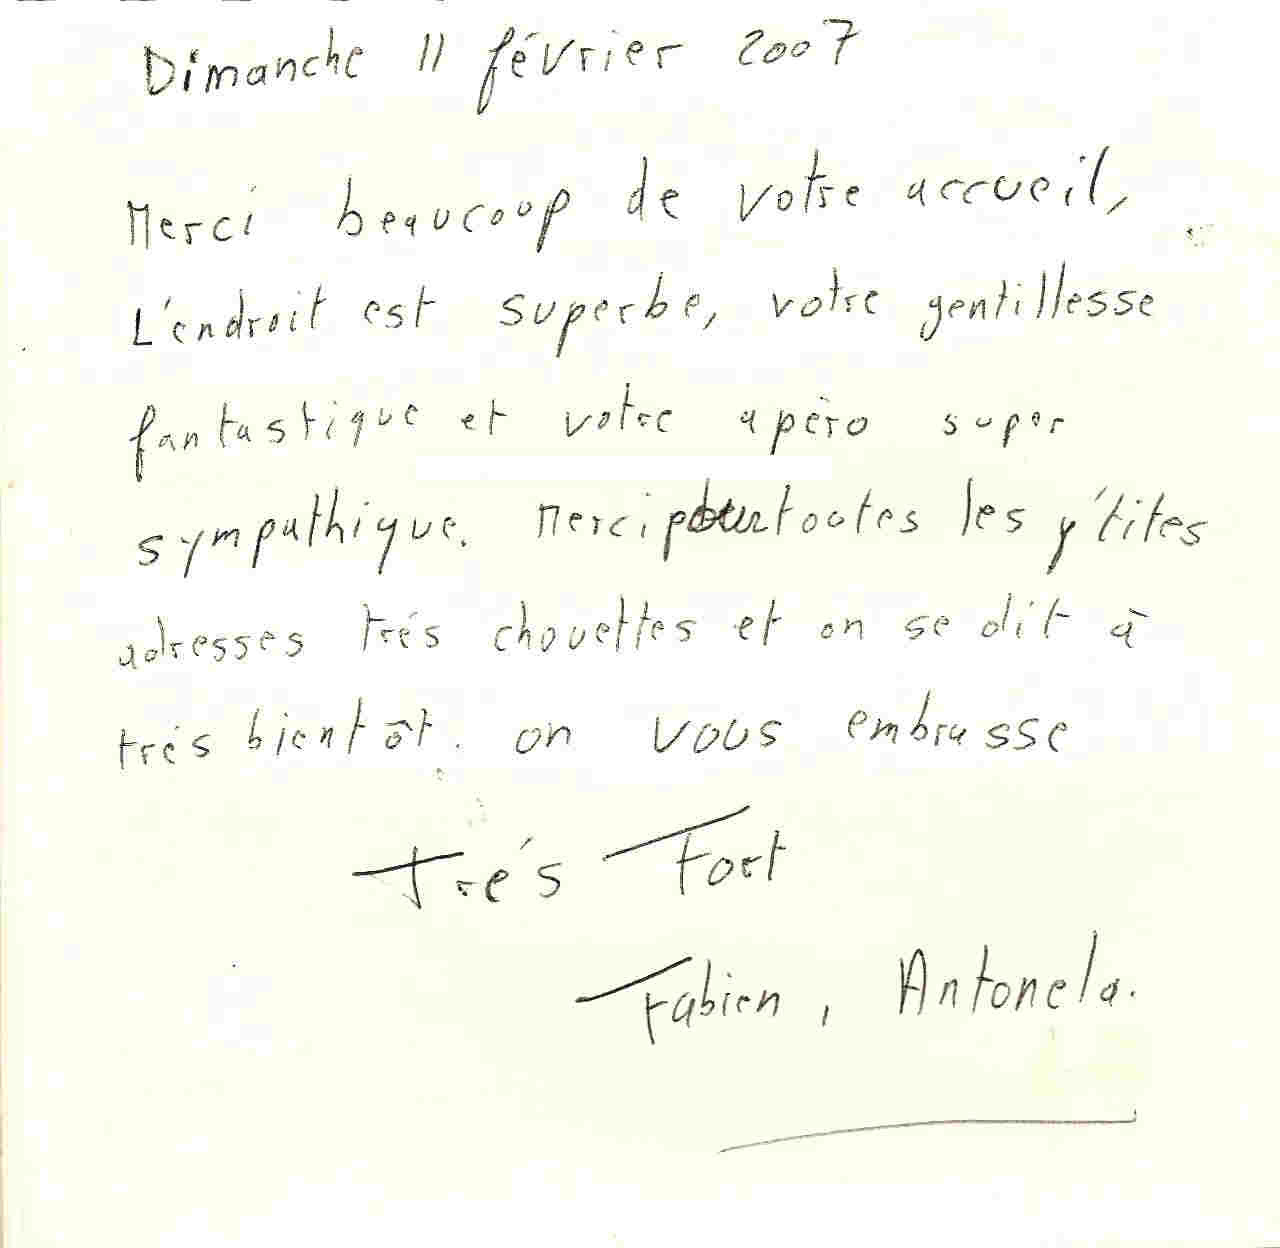 Dimanche 11 février 2007
Merci beaucoup de votre accueil,
L'endroit est superbe, votre gentillesse
fantastique et votre apèro super
sympathique. Merci pour toutes les p'tites
adresses trés chouettes et on se dit à
trés bientôt. on vous embrasse
Trés Fort
Fabien, Antonela.